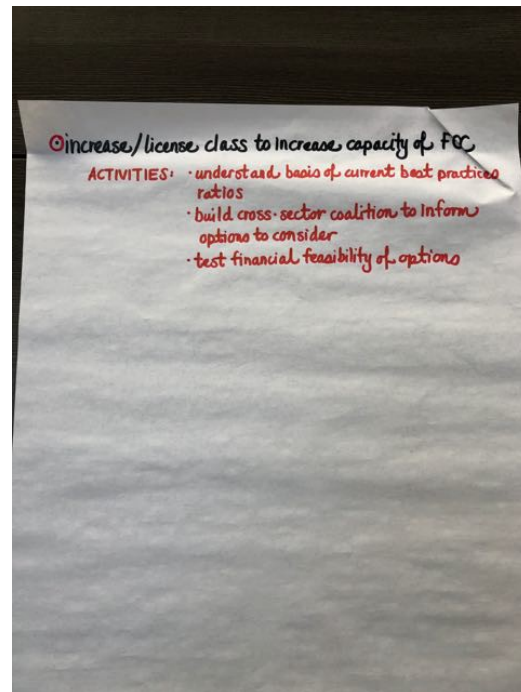 increase/license class to increase capacity of FCC
ACTIVITIES: · understand basis of current best practices
ratios
· build cross-sector coalition to inform
options to consider
· test financial feasibility of options